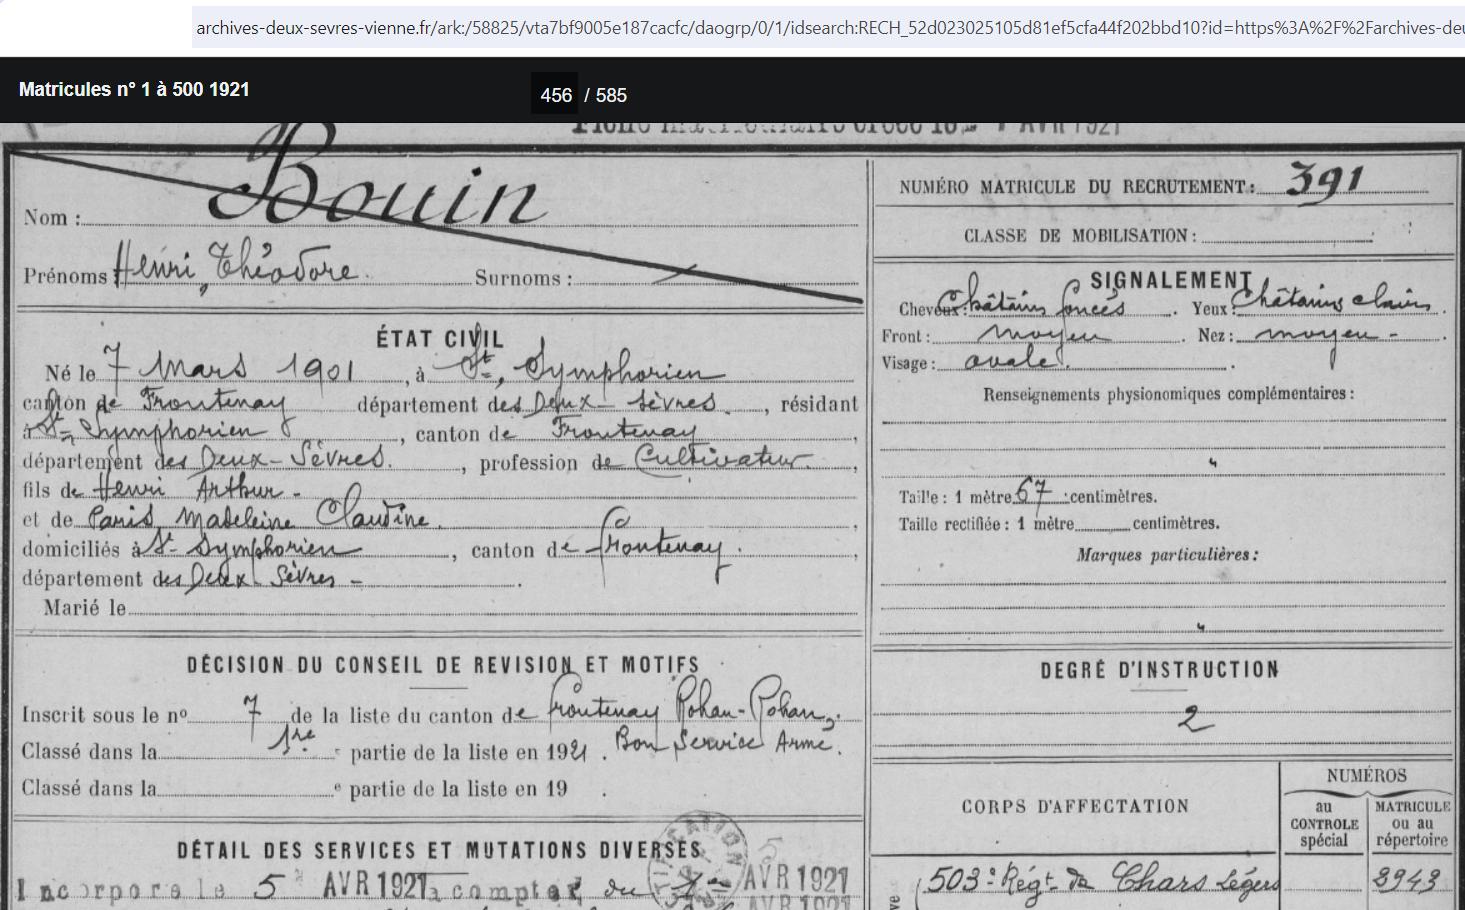 archives-deux-sevres-vienne.fr/ark:/58825/vta7bf9005e187cacfc/daogrp/0/1/idsearch:RECH_52d023025105d81ef5cfa44f202bbd10?id=https%3A%2F%2Farchives-deu
Matricules n° 1 à 500 1921
456 / 585
AVR 1921
Nom : Bouin
Prénoms Henri, Théodore Surnoms :
ÉTAT CIVIL
Né le 7 Mars 1901, à St, Symphorien
canton de Frontenay département des Deux-Sèvres, résidant
à St-Symphorien, canton de Frontenay,
département des Deux-Sèvres, profession de Cultivateur,
fils de Henri Arthur -
et de Paris, Madeleine Claudine,
domiciliés à St-Symphorien, canton de Frontenay,
département des Deux-Sèvres -.
Marié le
DÉCISION DU CONSEIL DE REVISION ET MOTIFS
Inscrit sous le n° 7 de la liste du canton de Frontenay Rohan-Rohan,
Classé dans la 1re partie de la liste en 1921. Bon Service Armé.
Classé dans la e partie de la liste en 19 .
DÉTAIL DES SERVICES ET MUTATIONS DIVERSES
Incorporé le 5 AVR 1921 à compter du AVR 1921
NUMÉRO MATRICULE DU RECRUTEMENT : 391
CLASSE DE MOBILISATION :
SIGNALEMENT
Cheveux : Châtains foncés. Yeux : Châtains clairs.
Front : moyen. Nez : moyen -.
Visage : ovale.
Renseignements physionomiques complémentaires :
Taille : 1 mètre 67 centimètres.
Taille rectifiée : 1 mètre centimètres.
Marques particulières :
DEGRÉ D'INSTRUCTION
2
CORPS D'AFFECTATION
NUMÉROS
au CONTROLE spécial
MATRICULE ou au répertoire
503e Régt de Chars légers
3943